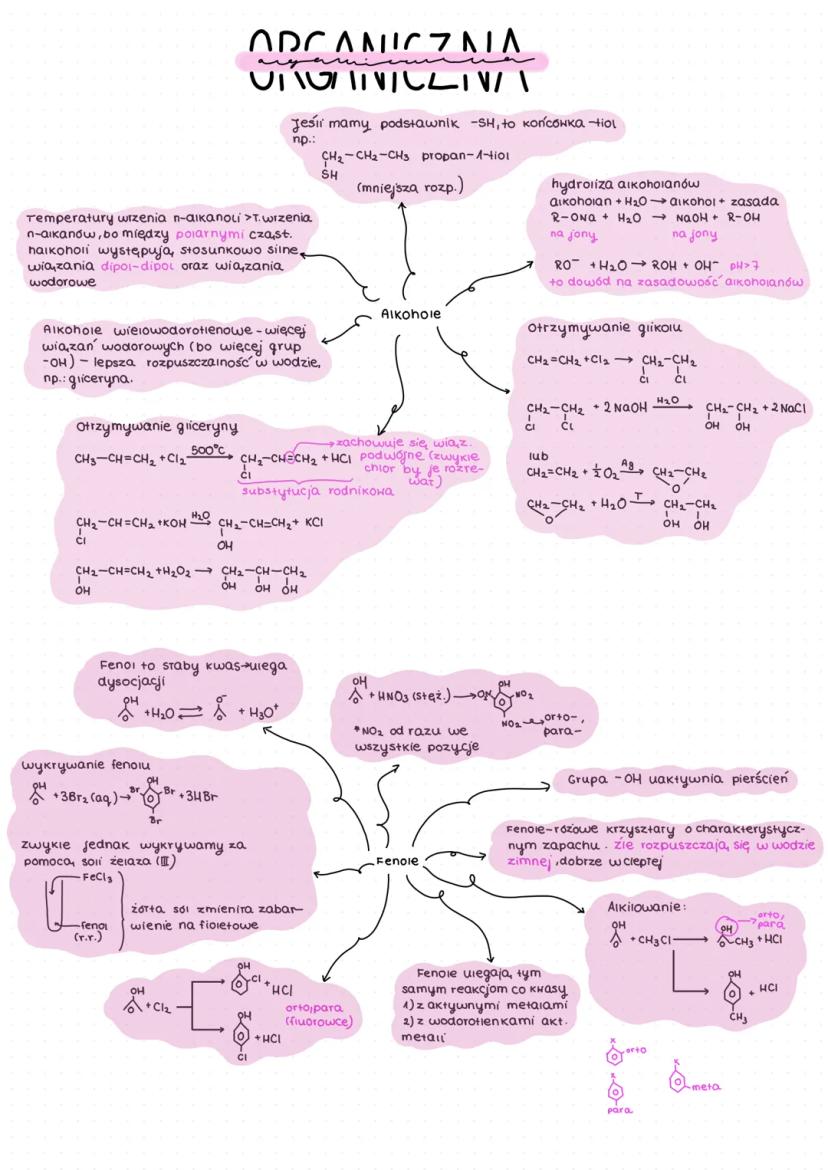 ORGANICZNA
organiczna
Jeśli mamy podstawnik -SH, to końcówka -tiol
np.:
CH₂-CH₂-CH₃ propan-1-tiol
SH
(mniejsza rozp.)
Temperatury wrzenia n-alkanoli >T. wrzenia
n-alkanów, bo między polarnymi cząst.
nalkoholi występują, stosunkowo silne
wiązania dipol-dipol oraz wiązania
wodorowe
hydroliza alkoholanów
alkoholan + H₂O → alkohol + zasada
R-ONa + H₂O → NaOH + R-OH
na jony na jony
RO⁻ + H₂O → ROH + OH⁻ pH>7
to dowód na zasadowość alkoholanów
Alkohole
Alkohole wielowodorotlenowe - więcej
wiązań wodorowych (bo więcej grup
-OH) - lepsza rozpuszczalność w wodzie,
np.: gliceryna.
Otrzymywanie glikolu
CH₂=CH₂ + Cl₂ → CH₂-CH₂
Cl Cl
CH₂-CH₂ + 2NaOH H₂O → CH₂-CH₂ + 2NaCl
Cl Cl OH OH
lub
CH₂=CH₂ + ½O₂ Ag → CH₂-CH₂
O
CH₂-CH₂ + H₂O T → CH₂-CH₂
O OH OH
Otrzymywanie gliceryny
CH₃-CH=CH₂ + Cl₂ 500°C → CH₂-CH=CH₂ + HCl
Cl
zachowuje się wiąz.
podwójne (zwykle
chlor by je rozre-
wał)
substytucja rodnikowa
CH₂-CH=CH₂ + KOH H₂O → CH₂-CH=CH₂ + KCl
Cl OH
CH₂-CH=CH₂ + H₂O₂ → CH₂-CH-CH₂
OH OH OH OH
Fenol to słaby kwas→ulega
dysocjacji
OH O⁻
+ H₂O ⇌ + H₃O⁺
OH OH
+ HNO₃ (stęż.) → O₂N NO₂
NO₂ → orto-,
para-
*NO₂ od razu we
wszystkie pozycje
wykrywanie fenolu
OH OH
+ 3Br₂ (aq) → Br Br + 3HBr
Br
zwykle jednak wykrywamy za
pomocą soli żelaza (III)
FeCl₃
fenol
(r.r.)
żółta sól zmieniła zabar-
wienie na fioletowe
Grupa -OH uaktywnia pierścień
Fenole
Fenole-różowe kryształy o charakterystycz-
nym zapachu. źle rozpuszczają się w wodzie
zimnej, dobrze w ciepłej
Alkilowanie:
OH OH → orto,
para
+ CH₃Cl → CH₃ + HCl
OH
+ HCl
CH₃
OH
Cl + HCl
OH
+ Cl₂
orto,para
(fluorowce)
OH
+ HCl
Cl
Fenole ulegają, tym
samym reakcjom co kwasy
1) z aktywnymi metalami
2) z wodorotlenkami akt.
metali
X
orto
X
meta
X
para